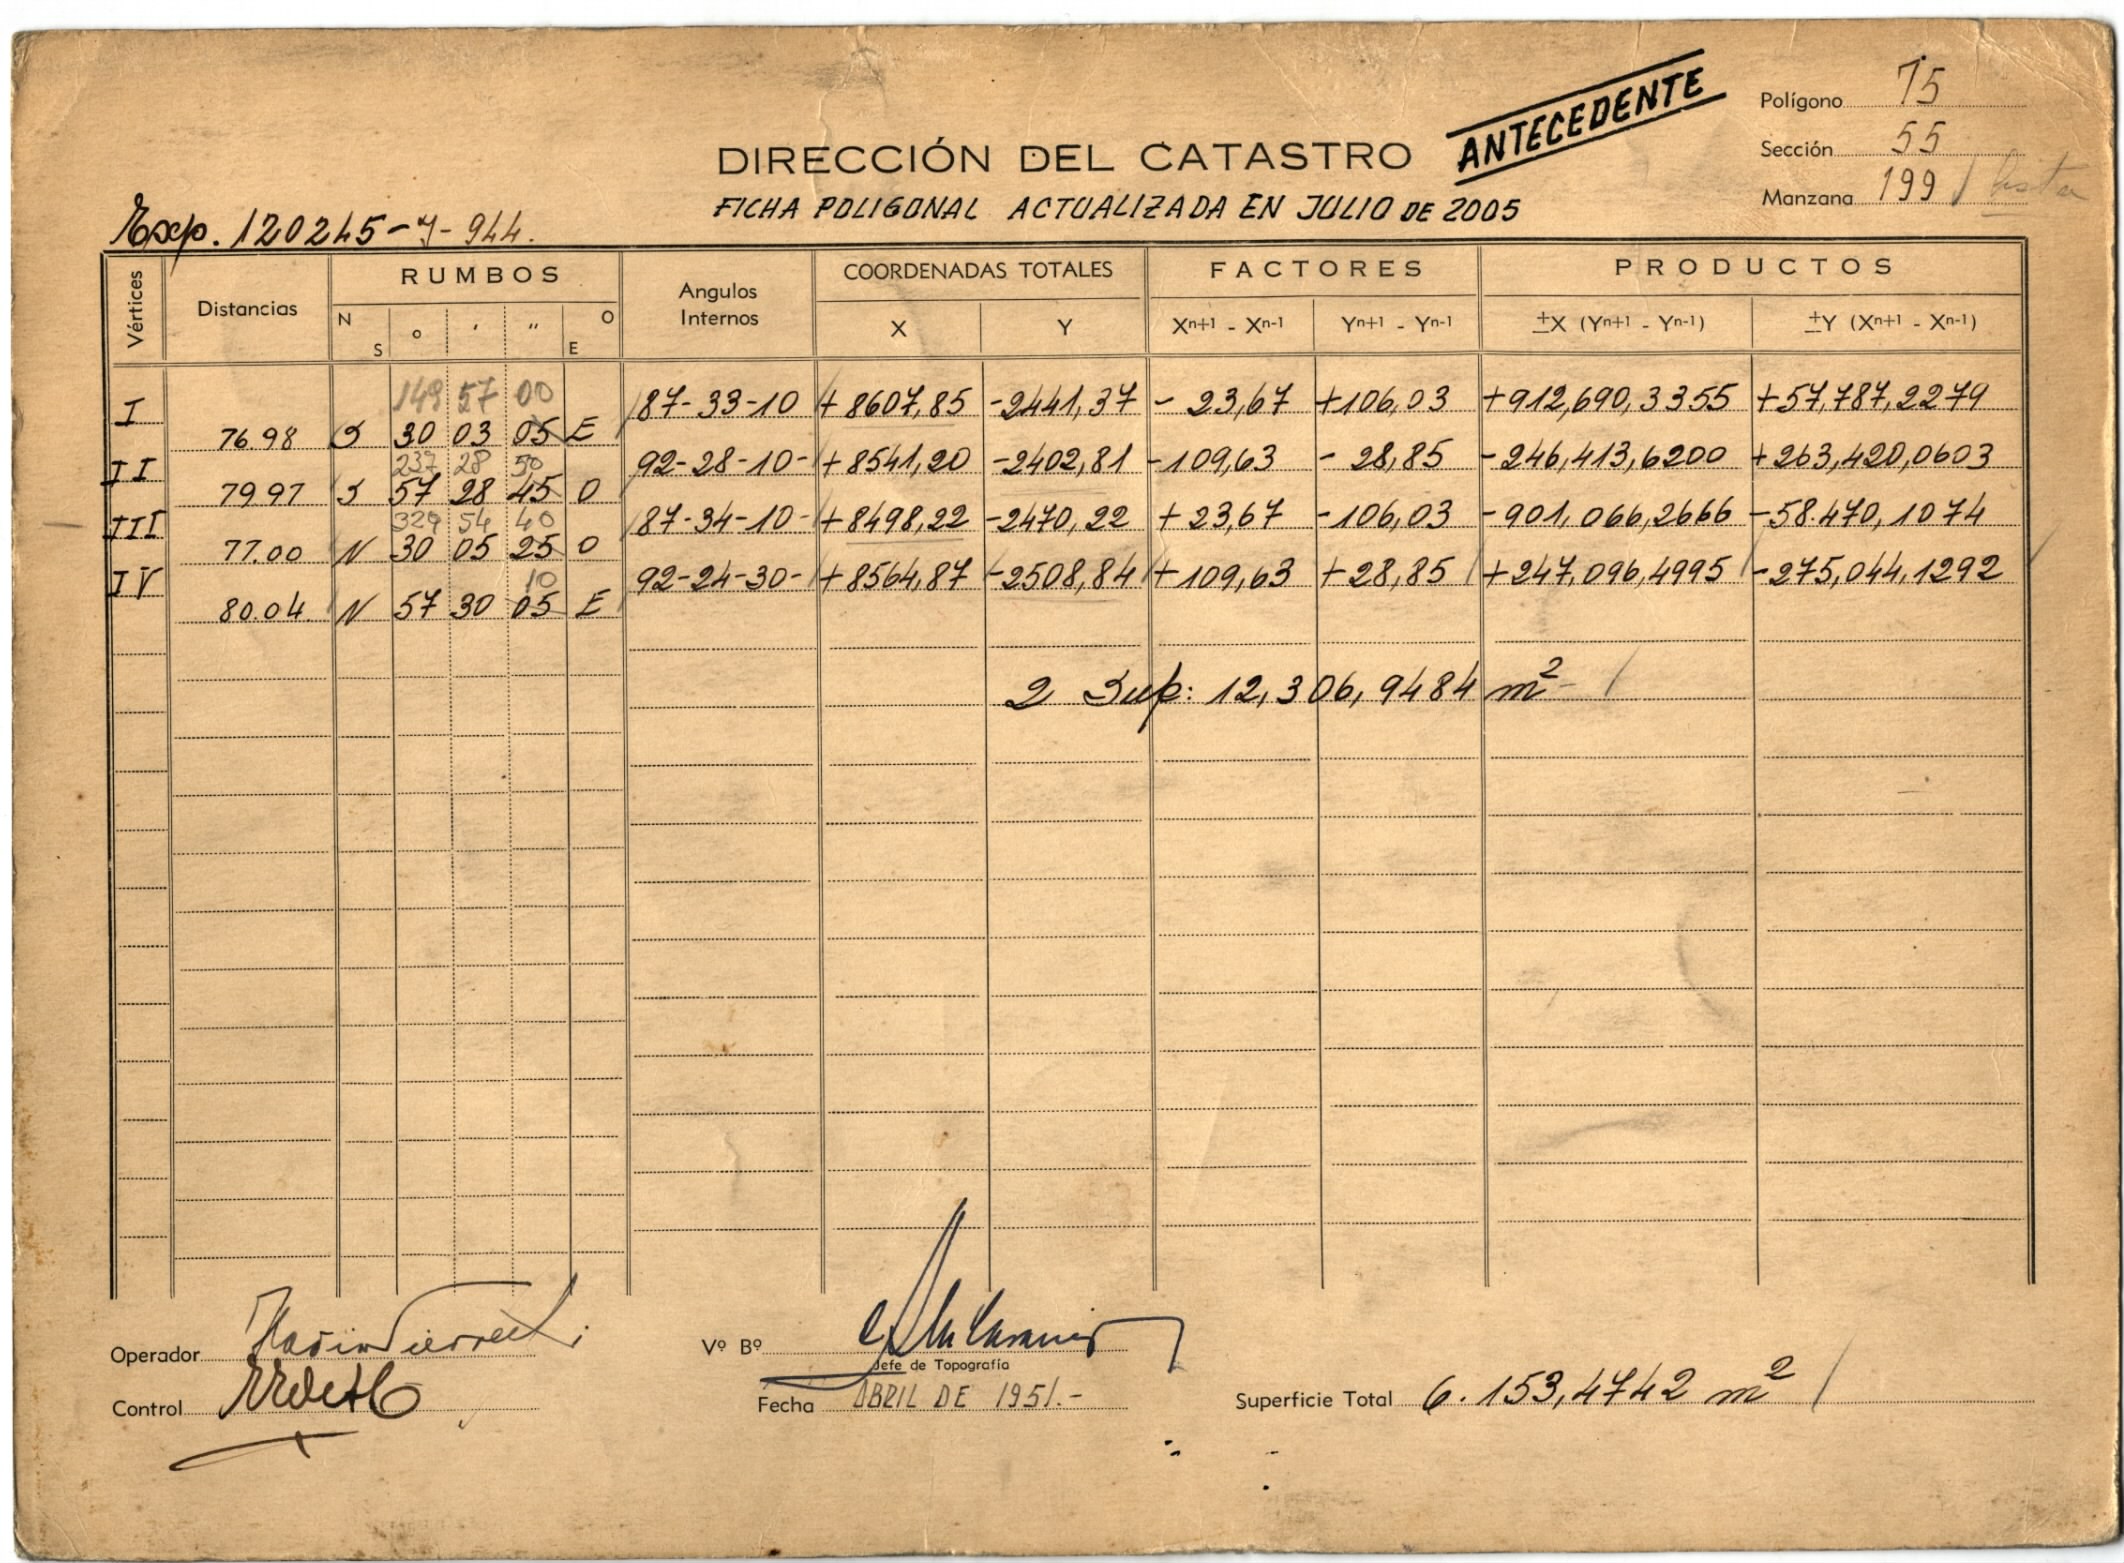 Polígono 75
ANTECEDENTE
DIRECCIÓN DEL CATASTRO
Sección 55
Manzana 199
FICHA POLIGONAL ACTUALIZADA EN JULIO DE 2005
Exp. 120245-J-944.
Vértices Distancias RUMBOS Angulos Internos COORDENADAS TOTALES FACTORES PRODUCTOS
N S ° ' " O E X Y Xn+1 - Xn-1 Yn+1 - Yn-1 ±X (Yn+1 - Yn-1) ±Y (Xn+1 - Xn-1)
149 57 00
I 87-33-10 +8607,85 -2441,37 - 23,67 +106,03 +912,690,3355 +57,787,2279
76.98 S 30 03 05 E
237 28 50
II 92-28-10- +8541,20 -2402,81 -109,63 - 28,85 -246,413,6200 +263,420,0603
79.97 S 57 28 45 O
329 54 40
III 87-34-10- +8498,22 -2470,22 + 23,67 -106,03 -901,066,2666 -58.470,1074
77.00 N 30 05 25 O
10
IV 92-24-30- +8564,87 -2508,84 +109,63 +28,85 +247,096,4995 -275,044,1292
80.04 N 57 30 05 E
2 Sup: 12,306,9484 m²
Operador
Vº Bº
Jefe de Topografía
Control
Fecha ABRIL DE 1951.-
Superficie Total 6.153,4742 m²